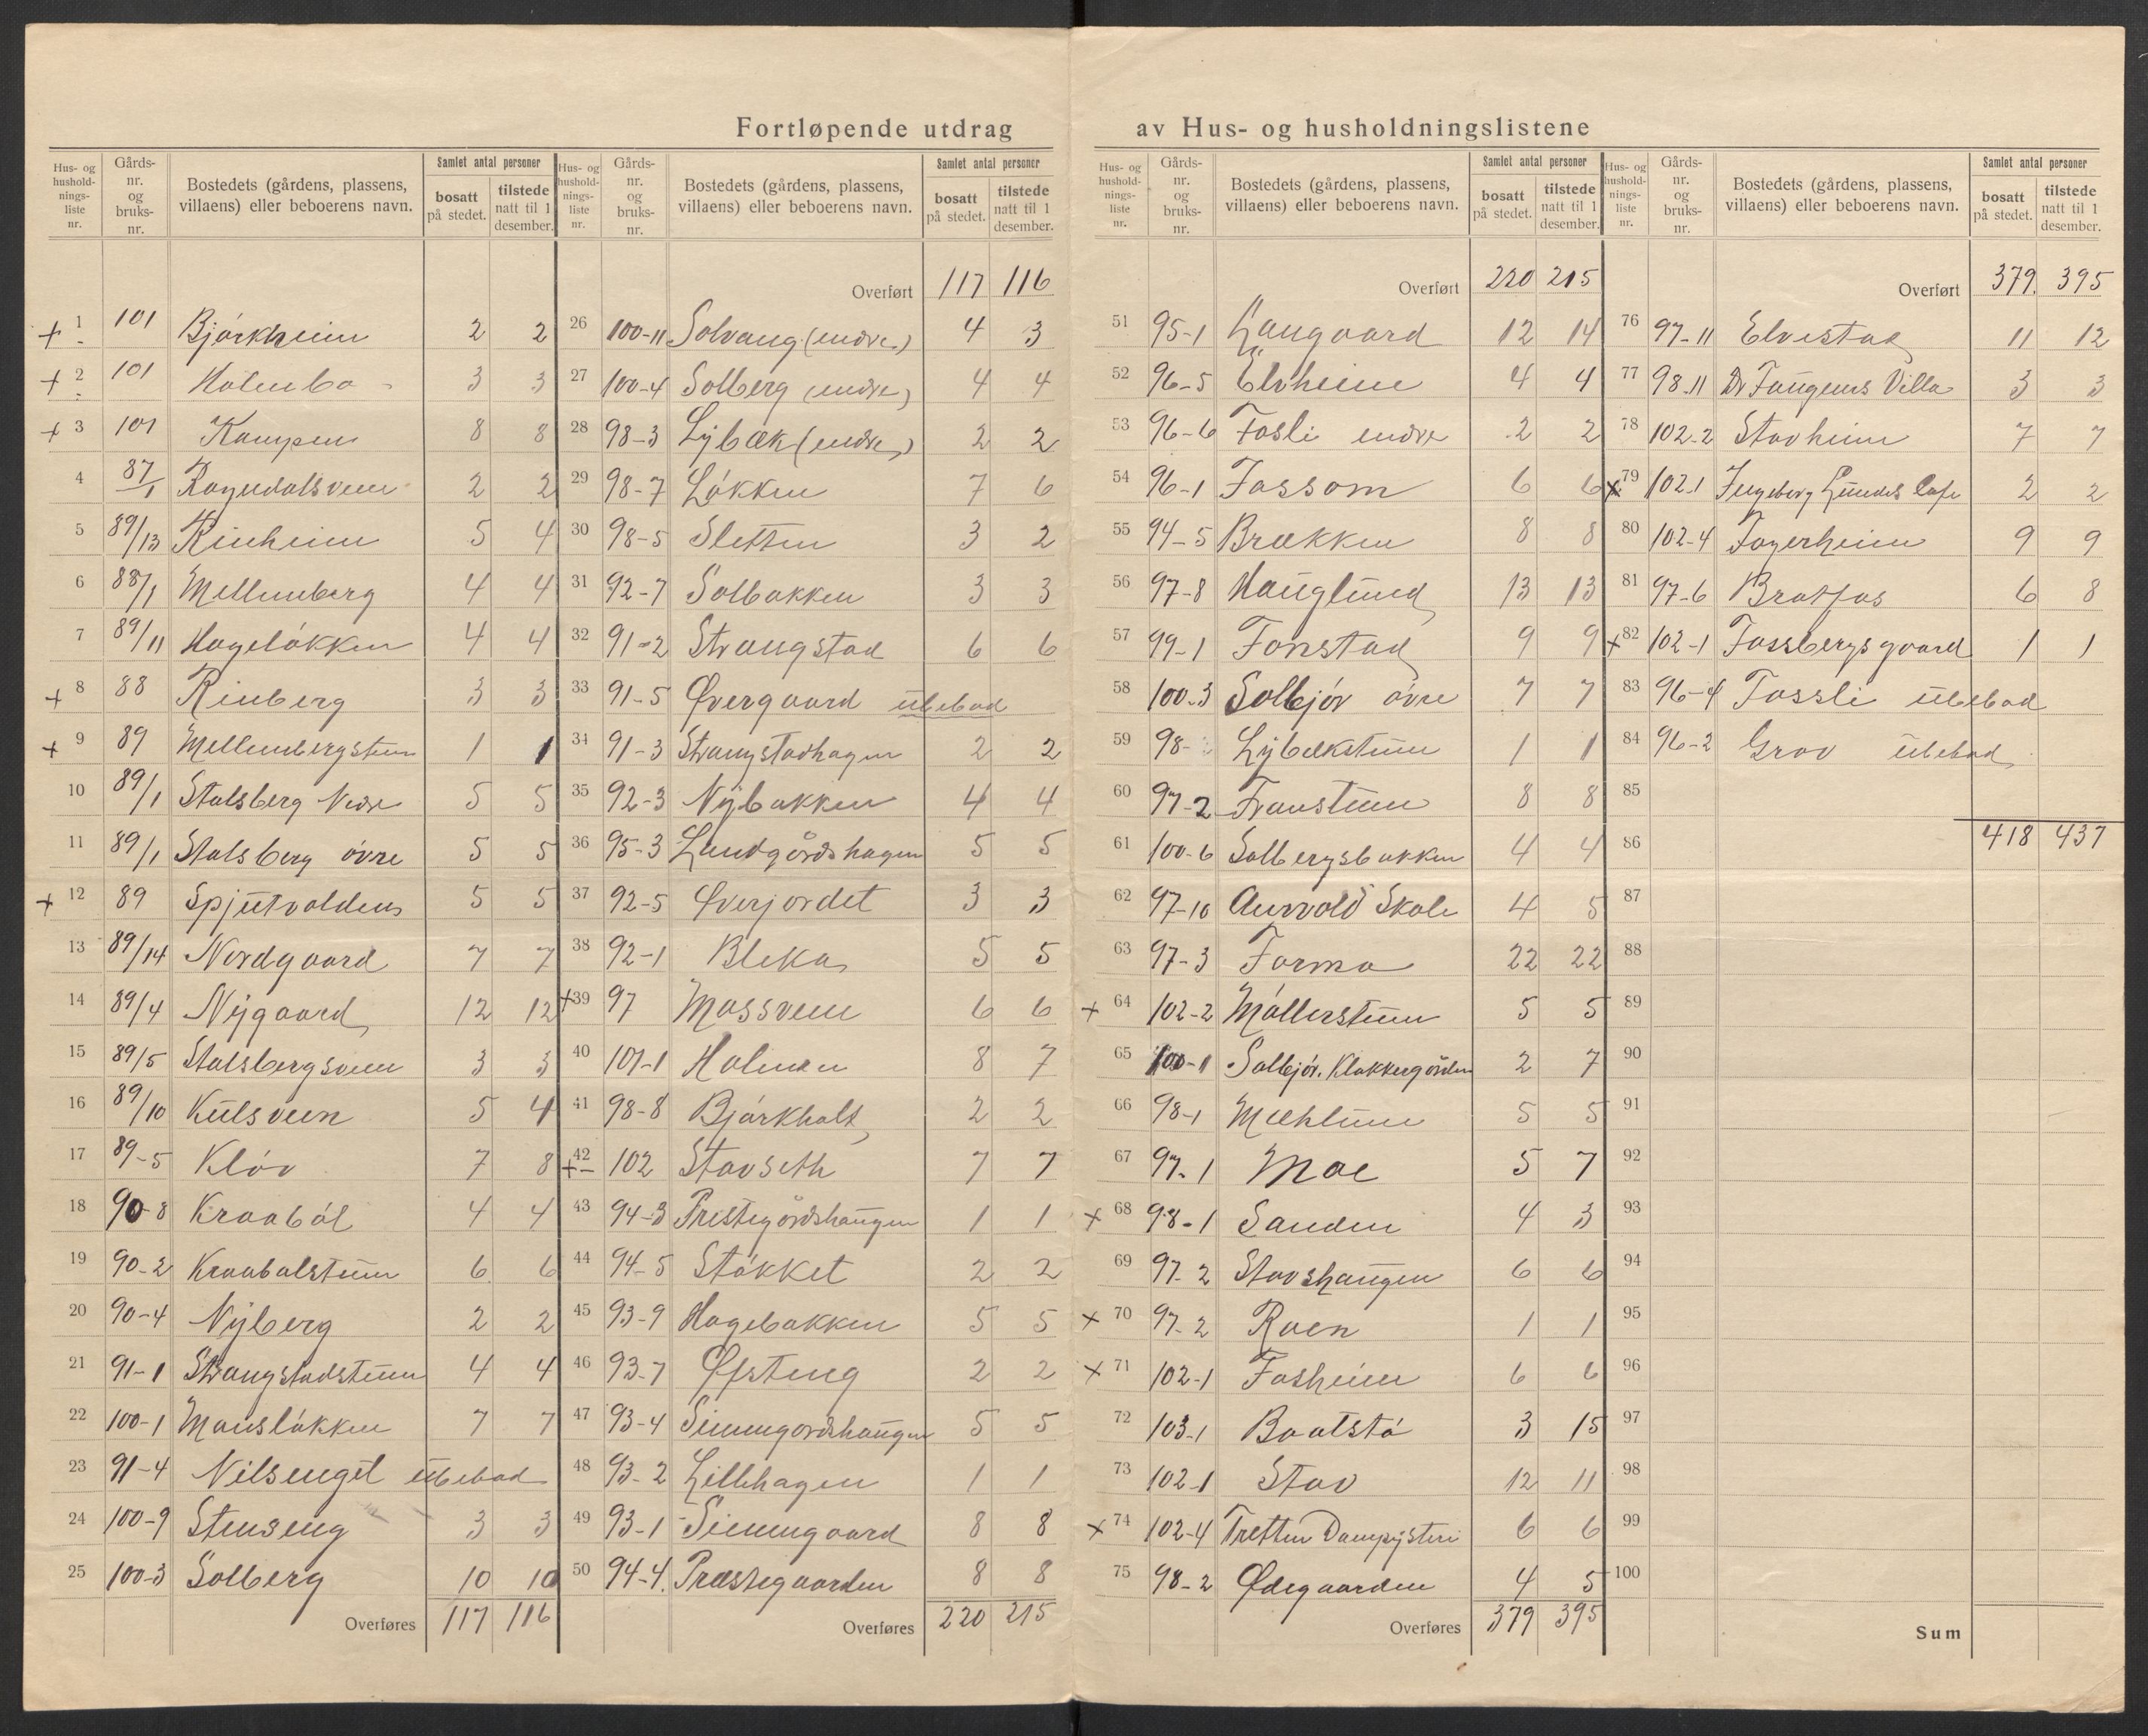 Fortløpende utdrag av Hus- og husholdningslistene
Hus- og husholdnings-liste nr. Gårds-nr. og bruks-nr. Bostedets (gårdens, plassens, villaens) eller beboerens navn. Samlet antal personer bosatt på stedet. tilstede natt til 1 desember.
+ 1 101 Bjórkheim 2 2
+ 2 101 Holmbo 3 3
+ 3 101 Kampen 8 8
4 87/1 Rognedalsveen 2 2
5 89/13 Rinheim 5 4
6 88/1 Mellumberg 4 4
7 89/11 Hagelókken 4 4
+ 8 88 Rinberg 3 3
+ 9 89 Mellumbergstuen 1 1
10 89/1 Stalsberg Nedre 5 5
11 89/1 Stalsberg óvre 5 5
+ 12 89 Spjutvolden 5 5
13 89/14 Nordgaard 7 7
14 89/4 Nygaard 12 12
15 89/5 Stalsbergsveen 3 3
16 89/10 Kulsveen 5 4
17 89-5 Klóv 7 8
18 90-8 Kraaból 4 4
19 90-2 Kraabolstuen 6 6
20 90-4 Nyberg 2 2
21 91-1 Strangstadstuen 4 4
22 100-1 Monslókken 7 7
23 91-4 Nilsenget ubebod
24 100-9 Stenseng 3 3
25 100-3 Solberg 10 10
Overføres 117 116
Hus- og husholdnings-liste nr. Gårds-nr. og bruks-nr. Bostedets (gårdens, plassens, villaens) eller beboerens navn. Samlet antal personer bosatt på stedet. tilstede natt til 1 desember.
Overført 117 116
26 100-11 Solvang (nedre) 4 3
27 100-4 Solberg (nedre) 4 4
28 98-3 Lybæk (nedre) 2 2
29 98-7 Lókken 7 6
30 98-5 Sletten 3 2
31 92-7 Solbakken 3 3
32 91-2 Strangstad 6 6
33 91-5 Øvergaard ubebod
34 91-3 Strangstadhagen 2 2
35 92-3 Nybakken 4 4
36 95-3 Landgårdshagen 5 5
37 92-5 Øverjordet 3 3
38 92-1 Bleka 5 5
+ 39 97 Mossveen 6 6
40 101-1 Holmen 8 7
41 98-8 Bjórkholt 2 2
+ 42 102 Stavseth 7 7
43 94-3 Prestegårdshaugen 1 1
44 94-5 Stókket 2 2
45 93-9 Hagebakken 5 5
46 93-7 Øfsteng 2 2
47 93-4 Simengordshaugen 5 5
48 93-2 Lillehagen 1 1
49 93-1 Simengaard 8 8
50 94-4 Præstegaarden 8 8
Overføres 220 215
Hus- og husholdnings-liste nr. Gårds-nr. og bruks-nr. Bostedets (gårdens, plassens, villaens) eller beboerens navn. Samlet antal personer bosatt på stedet. tilstede natt til 1 desember.
Overført 220 215
51 95-1 Langaard 12 14
52 96-5 Elvheim 4 4
53 96-6 Fosli nedre 2 2
54 96-1 Fossom 6 6
55 94-5 Brækken 8 8
56 97-8 Hauglund 13 13
57 99-1 Fonstad 9 9
58 100-3 Solbjór óvre 7 7
59 98- Lybækstuen 1 1
60 97-2 Fronstuen 8 8
61 100-6 Solbergsbakken 4 4
62 97-10 Aurvold Skole 4 5
63 97-3 Formo 22 22
+ 64 102-2 Móllerstuen 5 5
65 100-1 Solbjór. Klokkergården 2 7
66 98-1 Mæhlum 5 5
67 97-1 Moe 5 7
+ 68 98-1 Sanden 4 3
69 97-2 Stavshaugen 6 6
+ 70 97-2 Roen 1 1
+ 71 102-1 Fosheim 6 6
72 103-1 Baatstó 3 15
73 102-1 Stav 12 11
+ 74 102-4 Tretten Dampysteri 6 6
75 98-2 Ødegaarden 4 5
Overføres 379 395
Hus- og husholdnings-liste nr. Gårds-nr. og bruks-nr. Bostedets (gårdens, plassens, villaens) eller beboerens navn. Samlet antal personer bosatt på stedet. tilstede natt til 1 desember.
Overført 379 395
76 97-11 Elvestad 11 12
77 98-11 Dr Faugens Villa 3 3
78 102-2 Stavheim 7 7
x 79 102-1 Ingeborg Lundes Cafe 2 2
80 102-4 Fagerheim 9 9
81 97-6 Bratfos 6 8
+ 82 102-1 Fossbergsgaard 1 1
83 96-4 Fossli ubebod
84 96-2 Grov ubebod
85
86 418 437
87
88
89
90
91
92
93
94
95
96
97
98
99
100
Sum